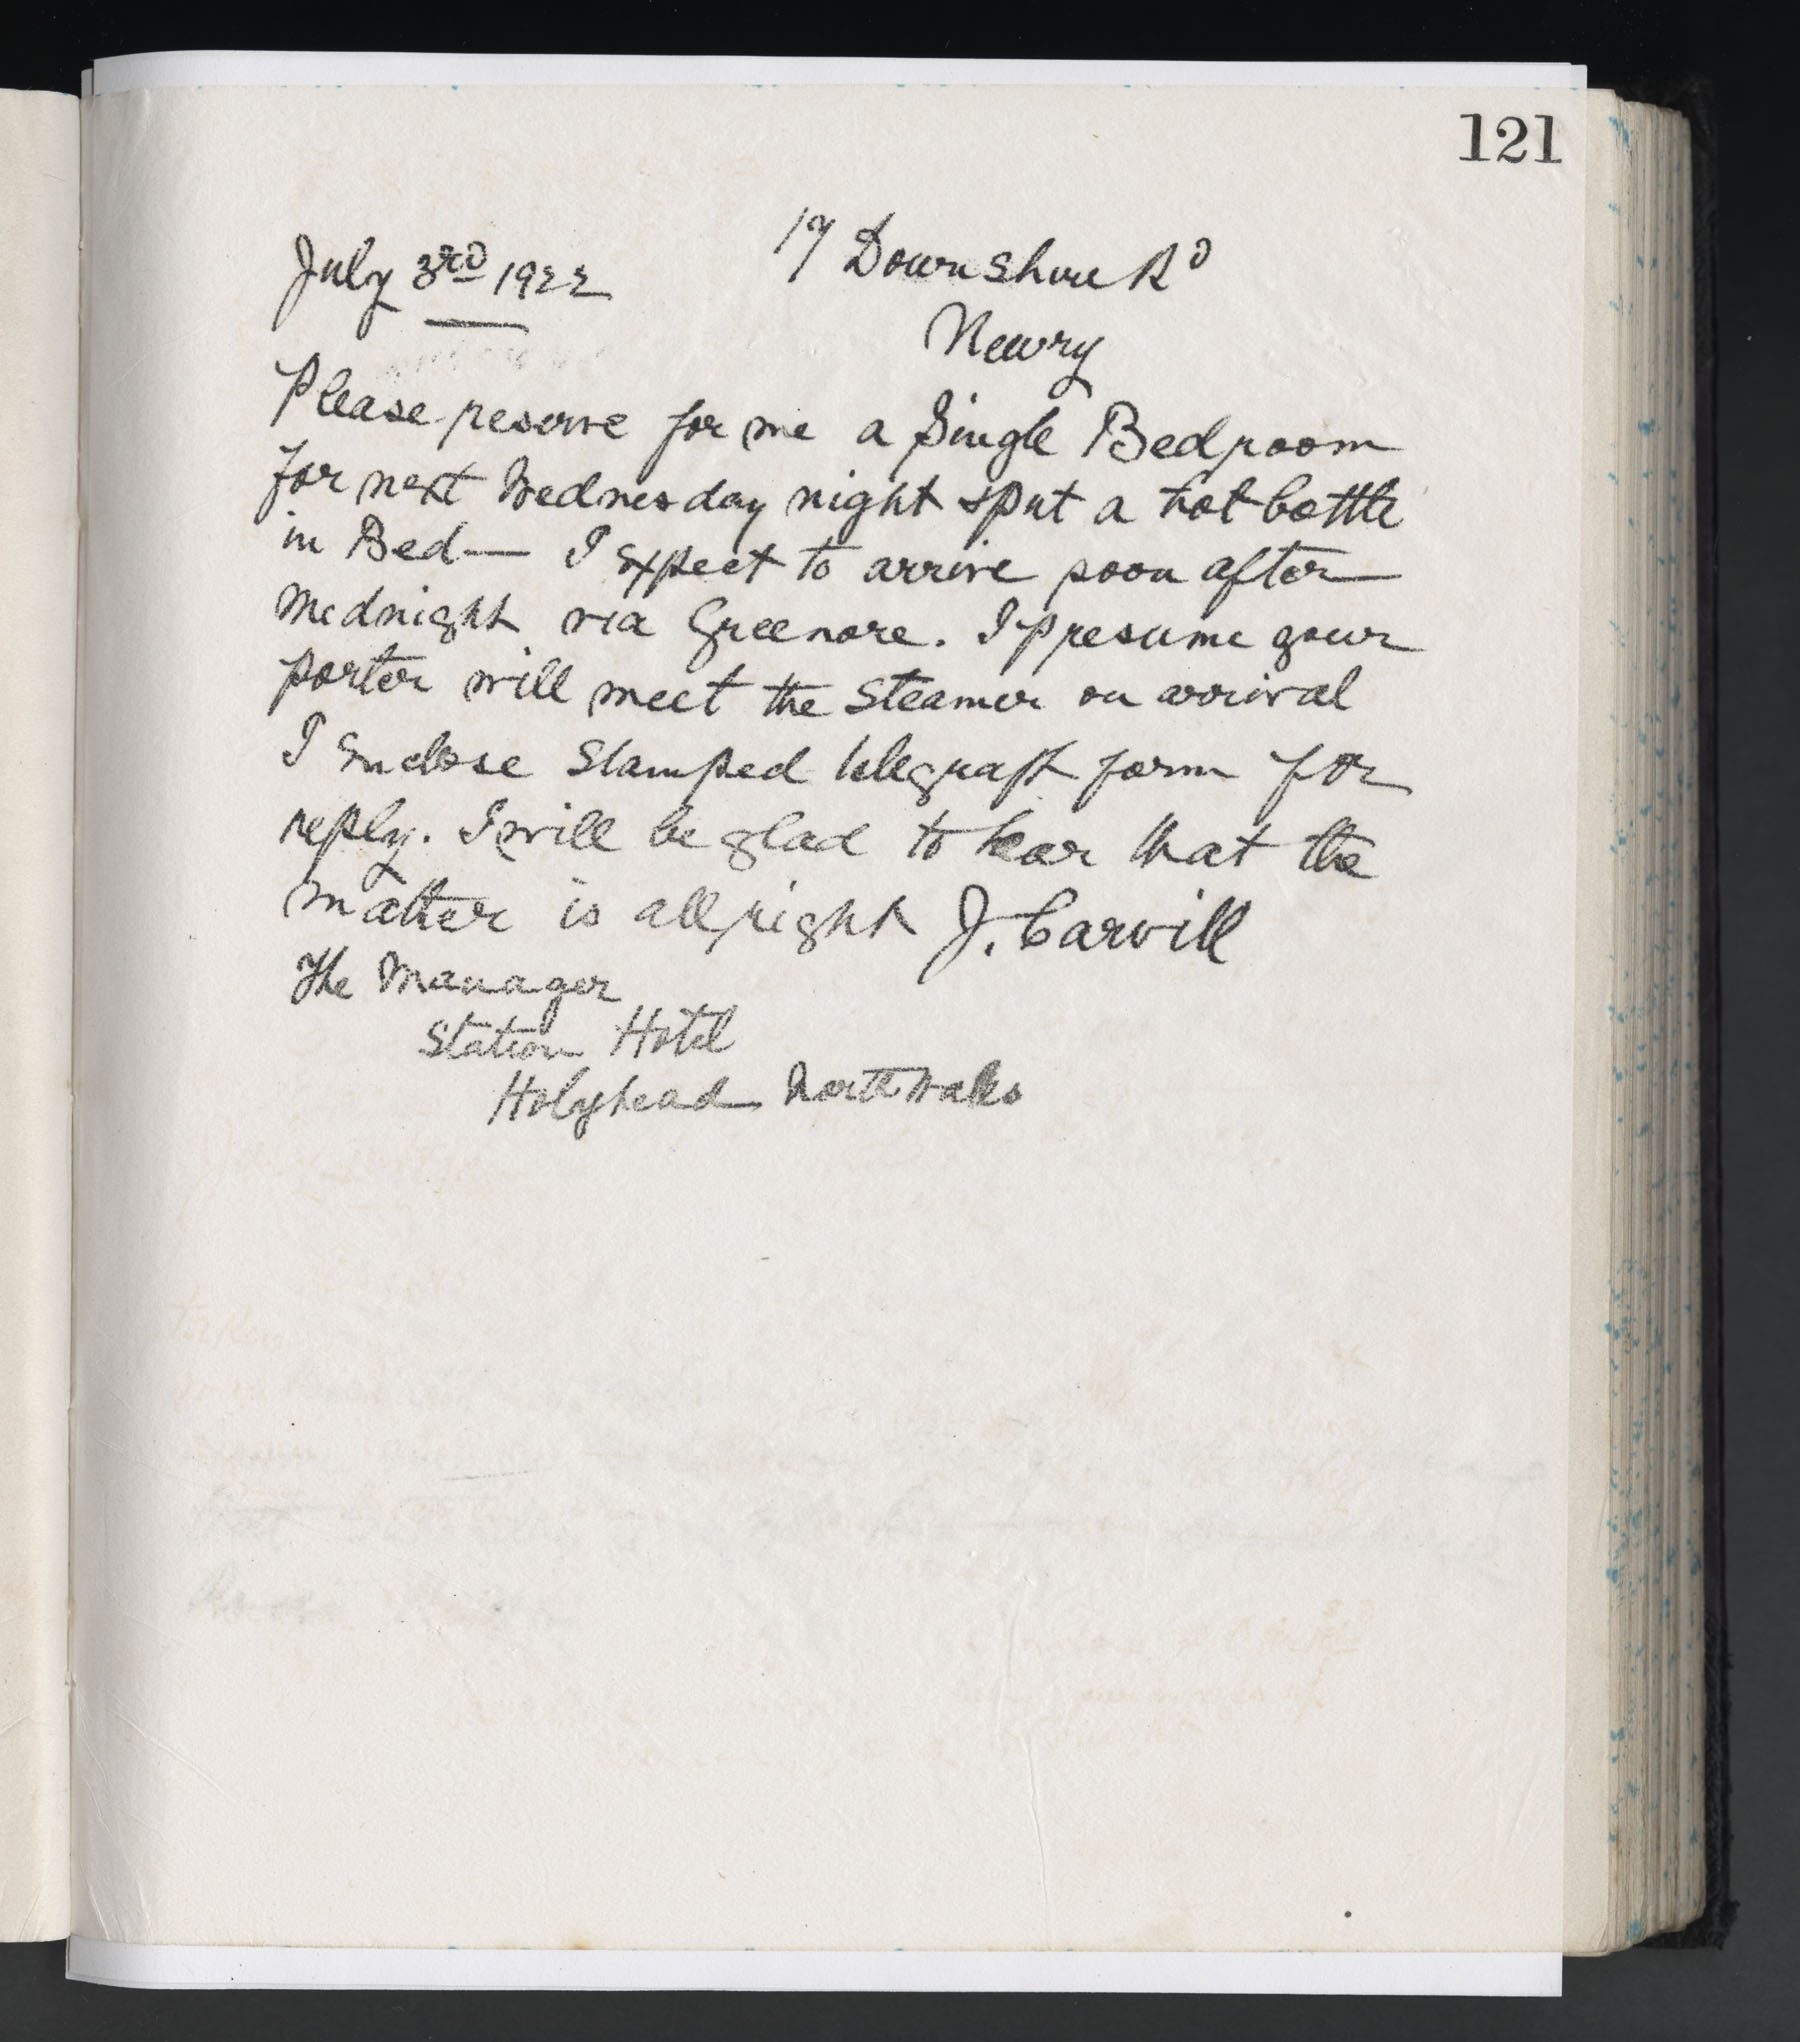 121
July 3rd 1922
17 Downshire Rd
Newry
Please reserve for me a Single Bedroom
for next Wednesday night & put a hot bottle
in Bed — I expect to arrive soon after
Midnight via Greenore. I presume your
porter will meet the Steamer on arrival
I Enclose Stamped telegraph form for
reply. I will be glad to hear that the
matter is all right J. Carvill
The Manager
Station Hotel
Holyhead North Wales